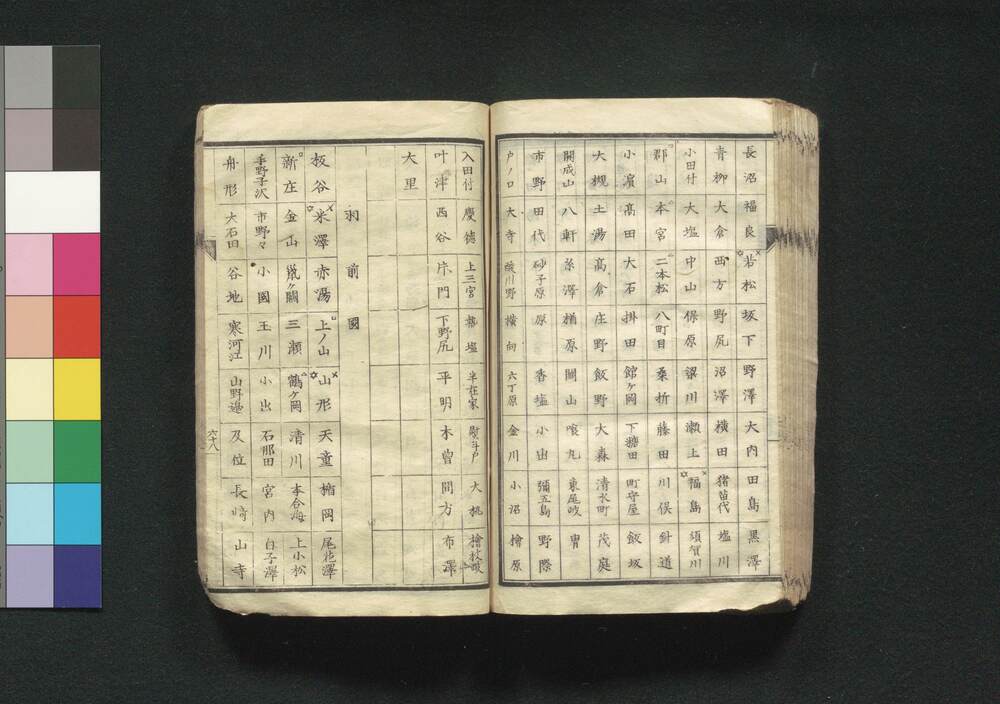 長沼 福良 若松 坂下 野澤 大内 田島 黒澤
青柳 大倉 西方 野尻 沼澤 横田 猪苗代 塩川
小田付 大塩 中ノ山 保原 梁川 瀬上 福島 須賀川
郡山 本宮 二本松 八町目 桑折 藤田 川俣 針道
小濱 髙田 大石 掛田 館ヶ岡 下糠田 町守屋 飯坂
大槻 土湯 髙倉 庄野 飯野 大森 清水町 茂庭
開成山 八軒 糸澤 楢原 関山 喰丸 東尾岐 冑
市野 田代 砂子原 原 香塩 小出 彌五島 野際
戸ノ口 大寺 酸川野 横向 六丁原 金川 小沼 檜原
入田付 慶徳 上三宮 熱塩 半在家 熨斗戸 大桃 檜枝岐
叶津 西谷 片門 下野尻 平明 木曽 間方 布澤
大里
羽前國
板谷 米澤 赤湯 上ノ山 山形 天童 楯岡 尾花澤
新庄 金山 鼠ヶ關 三瀬 鶴ヶ岡 清川 本合海 上小松
手野子沢 市野々 小國 玉川 小出 石那田 宮内 白子澤
舟形 大石田 谷地 寒河江 山野邉 及位 長﨑 山寺
六十八